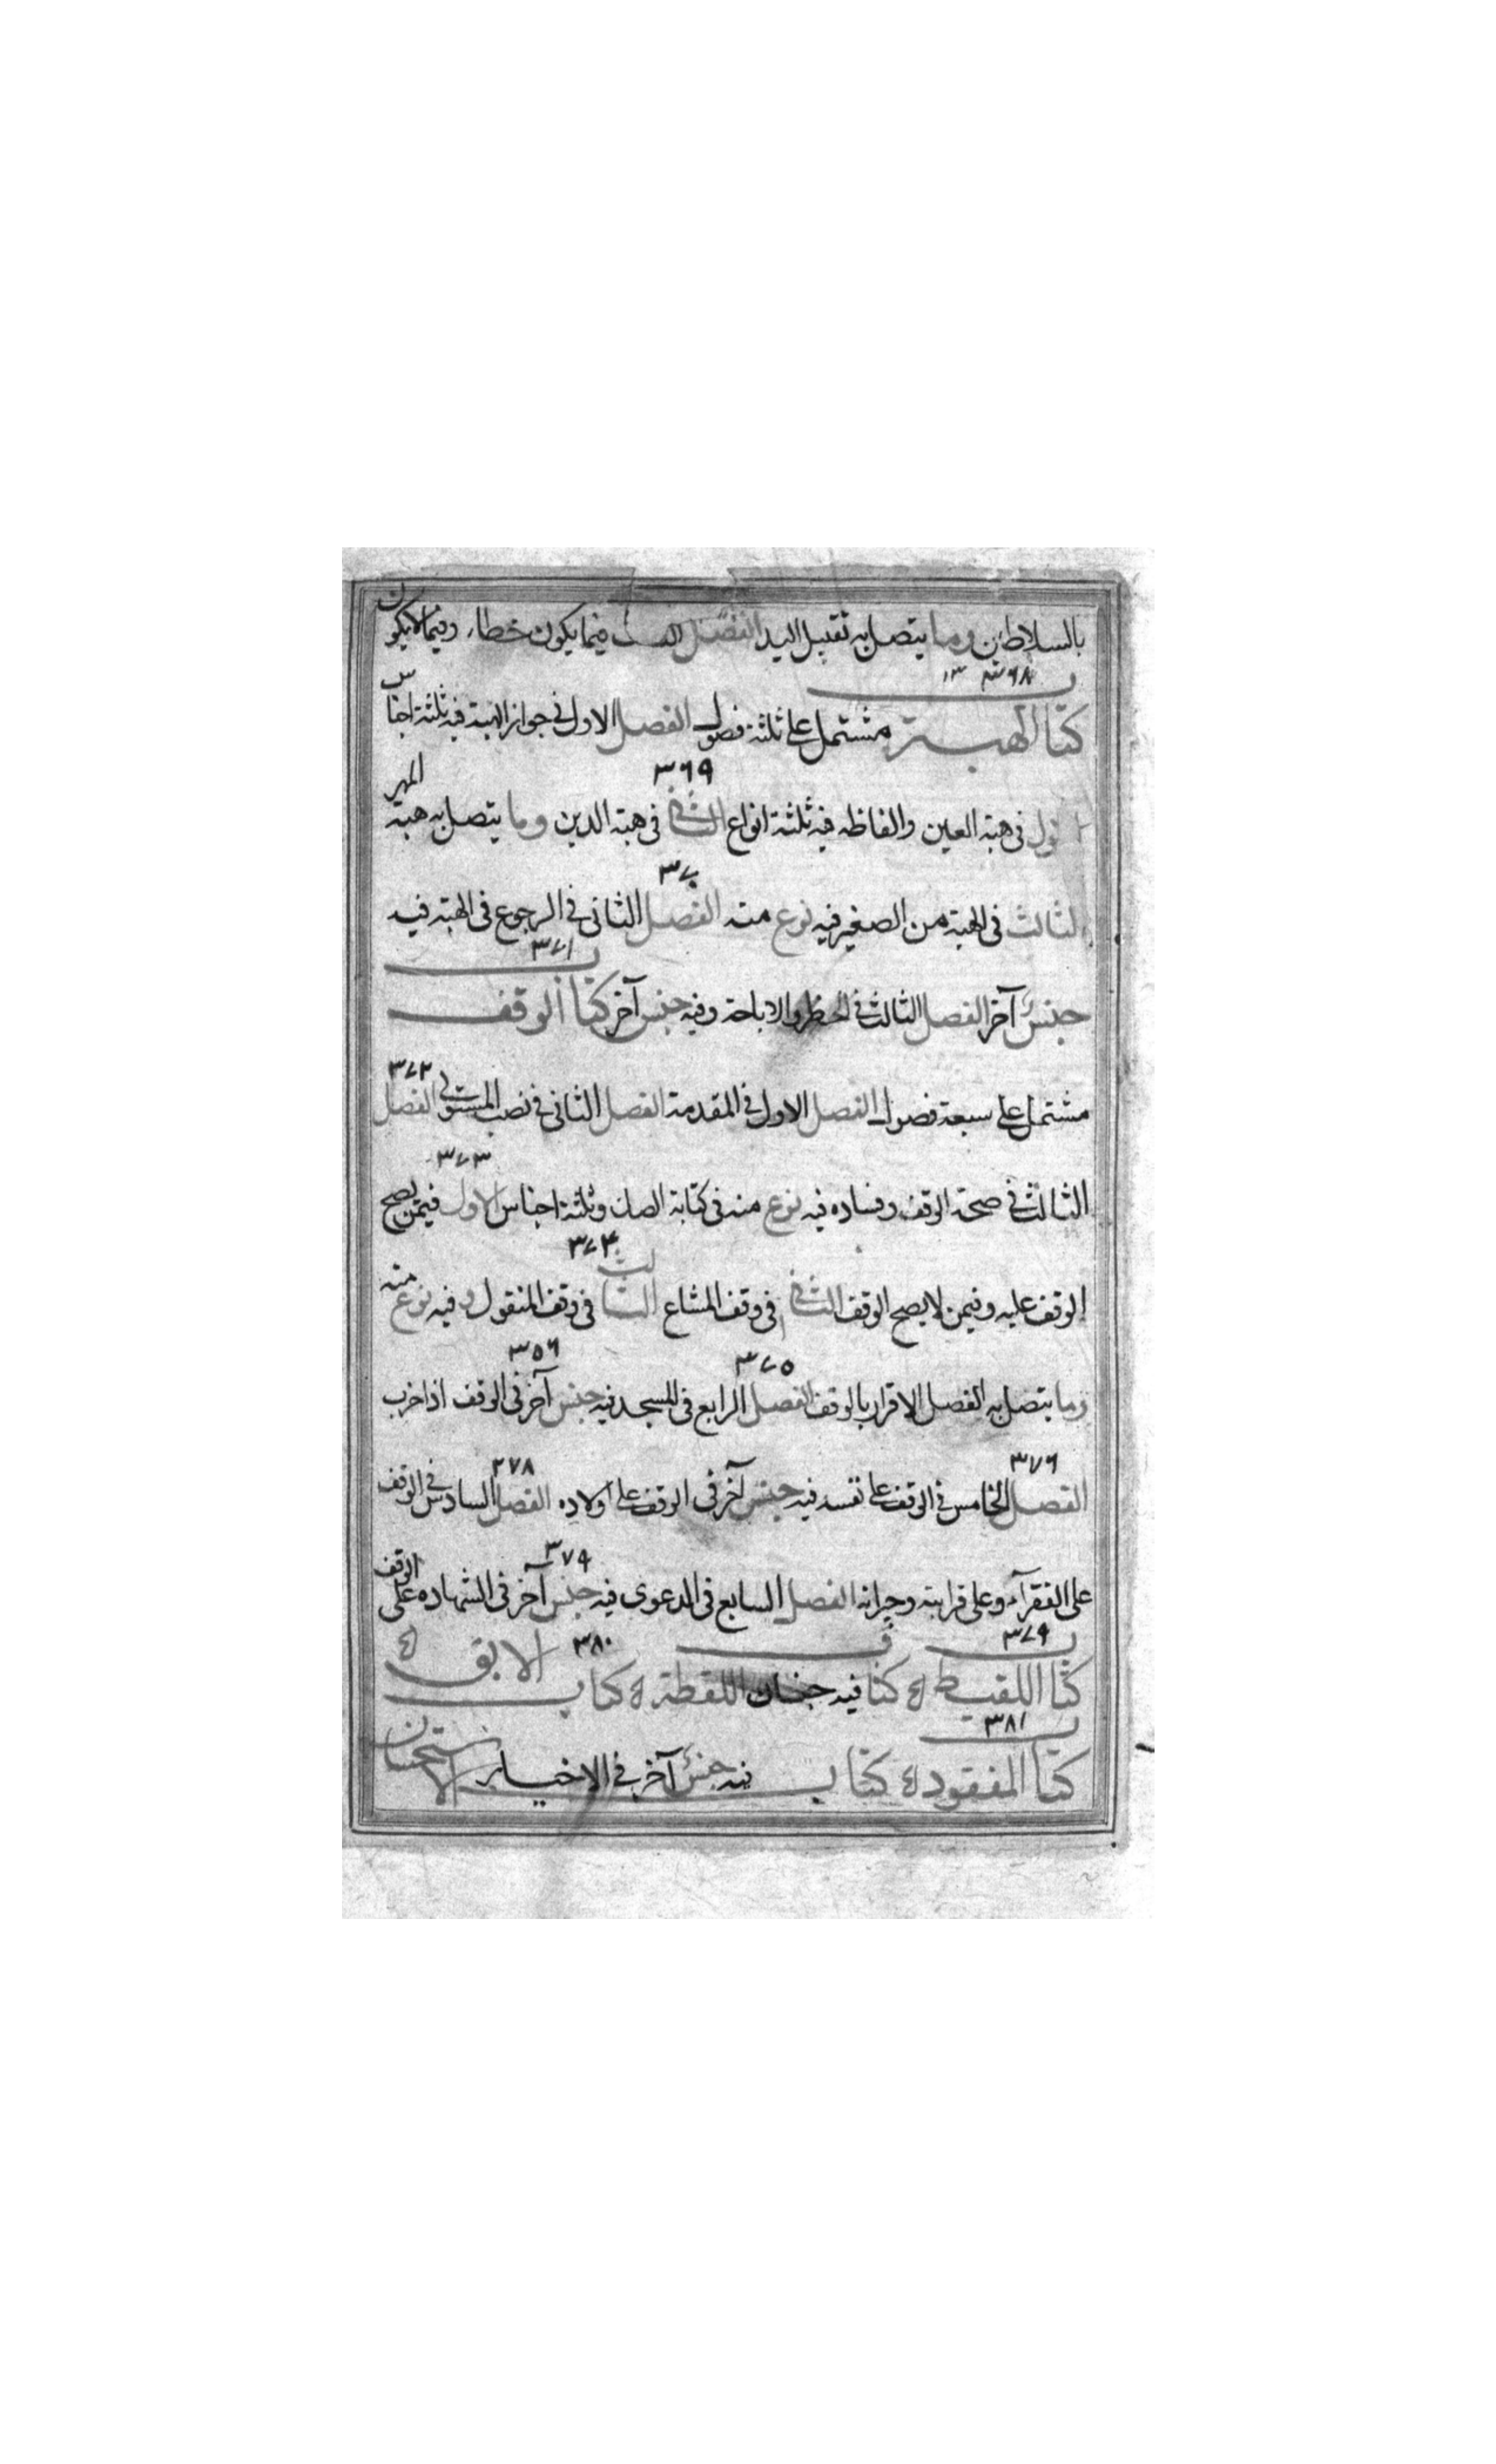 بالسلاطين وما يتصل به تقبيل اليد الفصل فيما يكون خطاء وفيما لا يكون
٣٦٨
كتاب الهبة مشتمل على ثلثة فصول الفصل الاول فى جواز الهبة فيه ثلثة اجناس
٣٦٩
الاول فى هبة العين والفاظه فيه ثلثة انواع الثانى فى هبة الدين وما يتصل به هبة المهر
٣٧٠
الثالث فى الهبة من الصغير فيه نوع منه الفصل الثانى فى الرجوع فى الهبة فيه
٣٧١
جنس آخر الفصل الثالث فى الحظر والاباحة وفيه جنس آخر كتاب الوقف
٣٧٢
مشتمل على سبعة فصول الفصل الاول فى المقدمة الفصل الثانى فى نصب المتولى الفصل
٣٧٣
الثالث فى صحة الوقف وفساده فيه نوع منه فى كتابة الصك وثلثة اجناس الاول فيمن يصح
٣٧٤
الوقف عليه وفيمن لا يصح الوقف الثانى فى وقف المشاع الثالث فى وقف المنقول وفيه نوع منه
٣٧٥ ٣٥٦
وما يتصل به الفصل الاقرار بالوقف الفصل الرابع فى المسجد فيه جنس آخر فى الوقف اذا خرب
٣٧٦ ٢٧٨
الفصل الخامس فى الوقف على نفسه فيه جنس آخر فى الوقف على اولاده الفصل السادس فى الوقف
٣٧٩
على الفقرآء وعلى قرابته وجيرانه الفصل السابع فى الدعوى فيه جنس آخر فى الشهاده على الوقف
٣٧٩ ٣٨٠
كتاب اللقيط كتاب فيه جنسان اللقطة كتاب الابق
٣٨١
كتاب المفقود كتاب الاستحسان فيه جنس آخر فى الاخبار